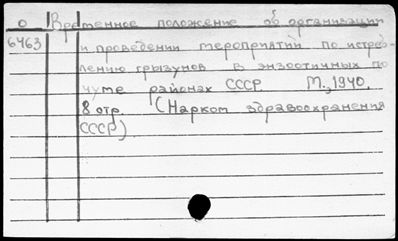 О Временное положение об организации
6463 и проведении мероприятий по истреб-
лению грызунов в энзоотичных по
чуме районах СССР М., 1940.
8 стр. (Нарком здравоохранения
СССР)